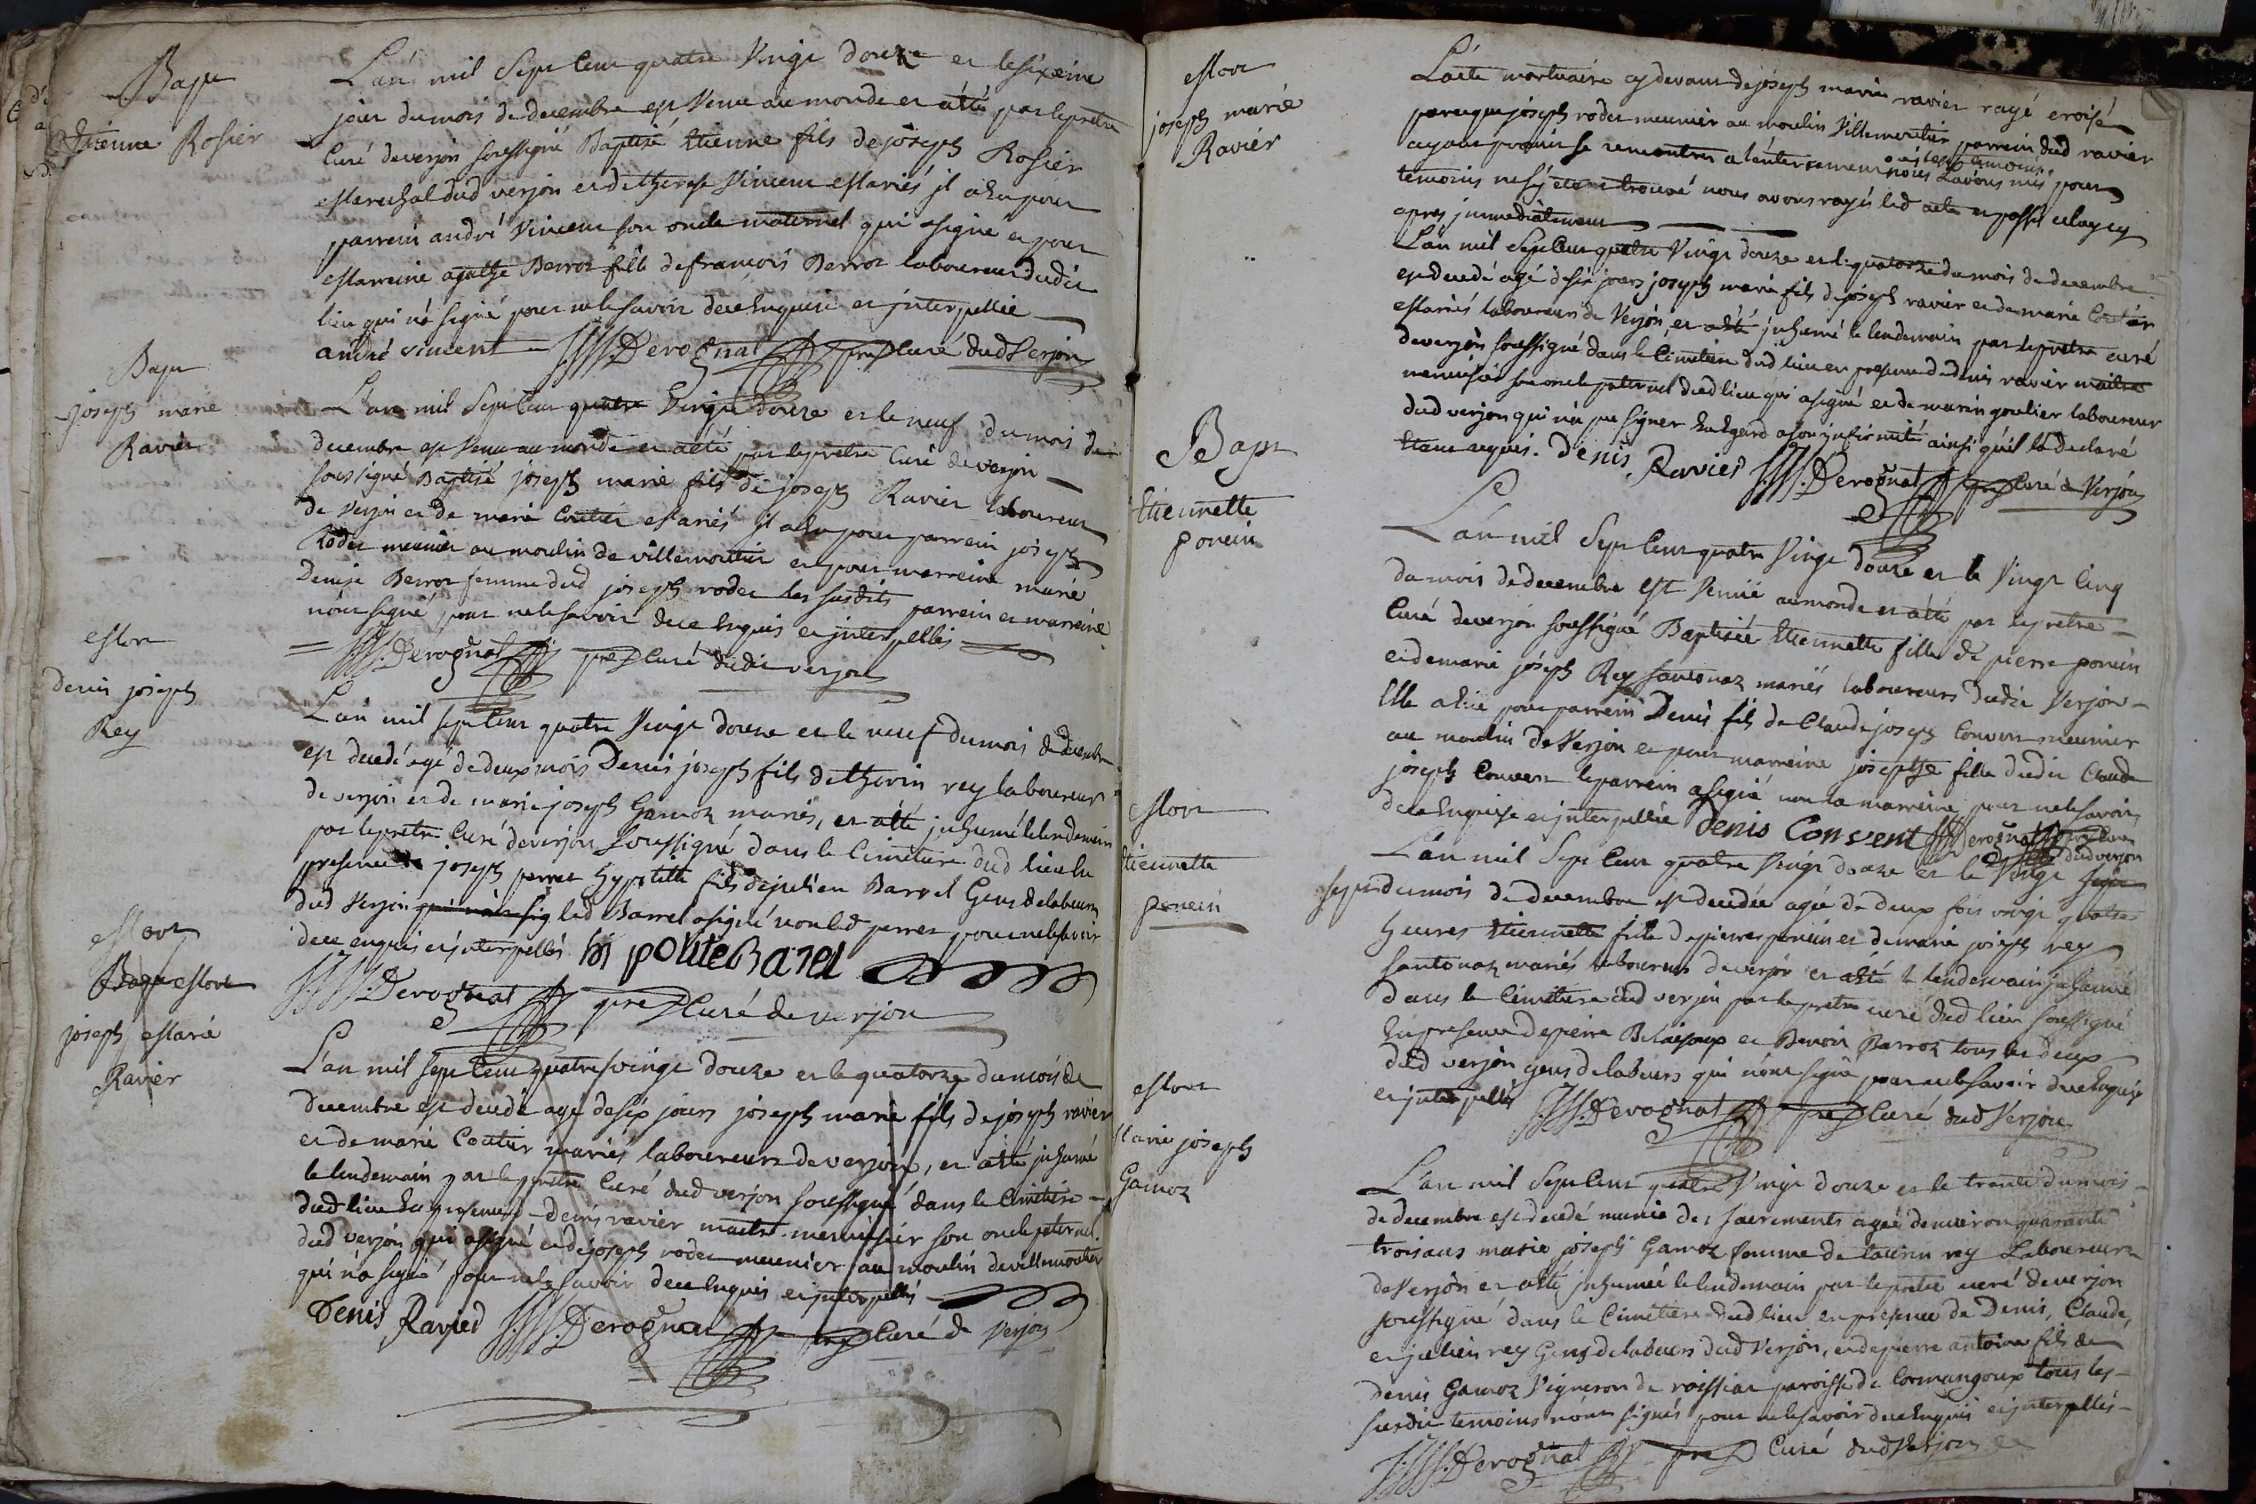 Bapt
Etienne Rosier
L'an mil Sept Cent quatre Vingt douze et le sixeime
jour du mois de decembre est Venu au monde et atté par le pretre
Curé de verjon soussigné Baptisé Etienne fils de joseph Rosier
Marechal dud verjon et de therese Vincent Mariés il a hu pour
parrein andré Vincent son oncle maternel qui a signé et pour
Marreine agathe Berroz fille de francois Berroz laboureur dudit
lieu qui n'a signé pour ne le savoir de ce Enquise et interpellée
andré vincent J.M. Derognat pre Curé dud Verjon
Bapt
joseph marie
Ravier
L'an mil Sept Cent quatre Vingt douze et le neuf du mois de
decembre est Venu au monde et atté par le pretre Curé de verjon
soussigné Baptisé joseph marie fils de joseph Ravier laboureur
de Verjon et de marie Coutier Mariés il a hu pour parrein joseph
Rodet meunier au moulin de villemoutier et pour marreine marie
Denise Berroz femme dud joseph rodet les susdits parrein et marreine
n'ont signé pour ne le savoir de ce Enquis et interpellés
J.M. Derognat pre Curé dudit verjon
Mort
denis joseph
Rey
L'an mil sept Cent quatre Vingt douze et le neuf du mois de decembre
est decedé agé de deux mois Denis joseph fils de thorin rey laboureur
de verjon et de marie joseph Gamoz mariés, et atté inhumé le lendemain
par le pretre Curé de verjon soussigné dans le Cimetiere dud lieu En
presence de joseph perret hypolitte fils de julien Barrel Gens de labeurs
dud Verjon qui n'ont sig led Barrel a signé non led perret pour ne le savoir
de ce enquis et interpellés hi polite Barel
J.M. Derognat pre Curé de verjon
Mort
Bapt Mort
joseph Marie
Ravier
L'an mil sept Cent quatre vingt douze et le quatorze du mois de
decembre est decedé agé de six jours joseph marie fils de joseph ravier
et de marie Coutier mariés laboureurs de verjon, et atté inhumé
le lendemain par le pretre Curé dud verjon soussigné dans le Cimetiere
dud lieu En presence de denis ravier maitre menuisier son oncle paternel
dud verjon qui a signé et de joseph rodet meunier au moulin de villemoutier
qui n'a signé pour ne le savoir de ce Enquis et interpellés
Denis Ravied J.M. Derognat pre Curé de Verjon
Mort
joseph marie
Ravier
L'acte mortuaire cy devant de joseph marie ravier rayé croisé
parceque joseph rodet meunier au moulin Villemoutier parrein dud ravier
ayant promis se rencontrer a l'enterrement nous l'avons mis pour
temoins ne s'y etant trouvé nous avons rayés led acte et passé celuy cy
apres immediatement
L'an mil Sept Cent quatre Vingt douze et le quatorze du mois de decembre
est decedé agé de six jours joseph marie fils de joseph ravier et de marie Coutier
Mariés laboureurs de Verjon, et atté inhumé le lendemain par le pretre curé
de verjon soussigné dans le Cimetiere dud lieu en presence de denis ravier maitre
menuisier son oncle paternel dud lieu qui a signé et de marin goulier laboureur
dud verjon qui n'a pu signer En Egard a son infirmité ainsi qu'il l'a declaré
Etant requis. Denis Ravier J.M. Derognat pre Curé de Verjon
Bapt
Etiennette
ponein
L'an mil Sept Cent quatre Vingt douze et le Vingt Cinq
du mois de decembre est Venüe au monde et atté par le pretre
Curé de verjon soussigné Baptisée Etiennette fille de pierre ponein
et de marie joseph Rey santonaz mariés laboureurs dudit Verjon
Elle a hu pour parrein Denis fils de Claude joseph Convert meunier
au moulin de Verjon et pour marreine josepthe fille dudit Claude
joseph Convert le parrein a signé non la marreine pour ne le savoir
de ce Enquise et interpellée Denis Convent J.M. Derognat pre Curé
dud verjon
Mort
Etiennette
ponein
L'an mil Sept Cent quatre Vingt douze et le Vingt sept
sept du mois de decembre est decedée agée de deux fois vingt quatre
heures Etiennette fille de pierre ponein et de marie joseph rey
santonaz mariés laboureurs de verjon et atté le lendemain inhumé
dans le Cimetiere dud verjon par le pretre curé dud lieu soussigné
En presence de pierre Belaisoup et Benoit Barroz tous les deux
dud verjon gens de labeurs qui n'ont signé pour ne le savoir de ce Enquis
et interpellés J.M. Derognat pre Curé dud Verjon
Mort
Marie joseph
Gamoz
L'an mil Sept Cent quatre Vingt douze et le trente du mois
de decembre est decedé munie des sacrements agée d'environ quarante
trois ans marie joseph Gamoz femme de taurin rey Laboureur
de Verjon et atté inhumée le lendemain par le pretre curé de verjon
soussigné dans le Cimetiere dud lieu en presence de Denis, Claude,
et julien rey Gens de labeurs dud Verjon, et de pierre antoine fils de
denis Gamoz Vigneron de roissiat paroisse de Cormangoux tous les
susdit temoins n'ont signés pour ne le savoir de ce Enquis et interpellés
J.M. Derognat pre Curé dud Verjon